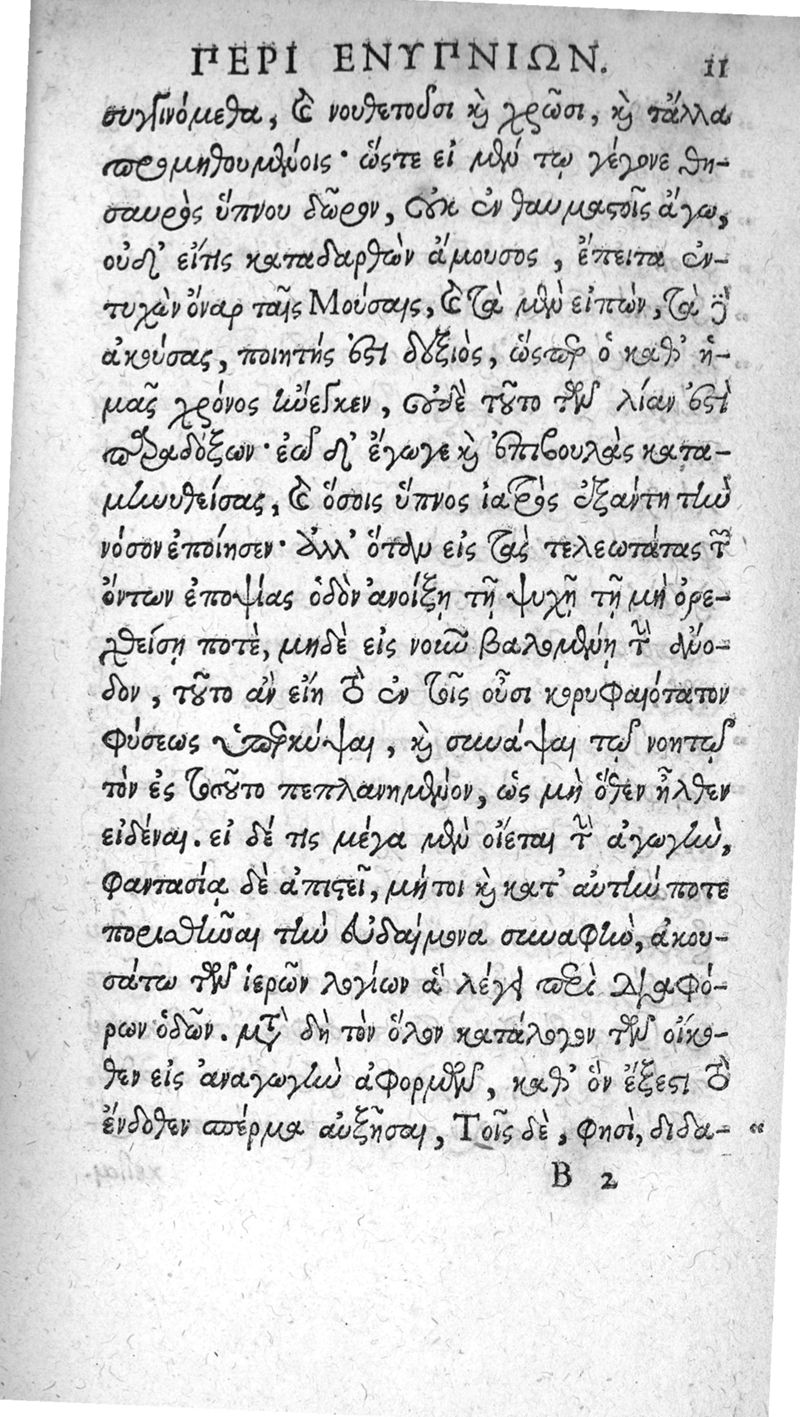 ΠΕΡΙ ΕΝΥΠΝΙΩΝ. 11
συγγινόμεθα, καὶ νουθετοῦσι καὶ χρῶσι, καὶ τἄλλα
προμηθουμένοις· ὥστε εἰ μέν τῳ γέγονε θη-
σαυρὸς ὕπνου δῶρον, οὐκ ἐν θαυμαστοῖς ἄγω,
οὐδ' εἴτις καταδαρθὼν ἄμουσος, ἔπειτα ἐν-
τυχὼν ὄναρ ταῖς Μούσαις, καὶ τὰ μὲν εἰπὼν, τὰ δὲ
ἀκούσας, ποιητής ἐστι δεξιὸς, ὥσπερ ὁ καθ' ἡ-
μᾶς χρόνος ἤνεγκεν, οὐδὲ τοῦτο τῶν λίαν ἐστὶ
παραδόξων· ἐῶ δ' ἔγωγε καὶ ἐπιβουλὰς κατα-
μηνυθείσας, καὶ ὅσοις ὕπνος ἰατρὸς ἐξάντη τὴν
νόσον ἐποίησεν· ἀλλ' ὅταν εἰς τὰς τελεωτάτας τῶν
ὄντων ἐποψίας ὁδὸν ἀνοίξῃ τῇ ψυχῇ τῇ μὴ ὀρε-
χθείσῃ ποτὲ, μηδὲ εἰς νοῦν βαλομένῃ τὴν ἄνο-
δον, τοῦτο ἂν εἴη τὸ ἐν τοῖς οὖσι κορυφαιότατον
φύσεως ὑπερκύψαι, καὶ συνάψαι τῷ νοητῷ
τὸν ἐς τοσοῦτο πεπλανημένον, ὡς μὴ ὅθεν ἦλθεν
εἰδέναι. εἰ δέ τις μέγα μὲν οἴεται τὴν ἀγωγὴν,
φαντασίᾳ δὲ ἀπιστεῖ, μήτοι καὶ κατ' αὐτὴν ποτε
πορισθῆναι τὴν εὐδαίμονα συναφὴν, ἀκου-
σάτω τῶν ἱερῶν λογίων ἃ λέγει περὶ διαφό-
ρων ὁδῶν. μετὰ δὴ τὸν ὅλον κατάλογον τῶν οἴκο-
θεν εἰς ἀναγωγὴν ἀφορμῶν, καθ' ὃν ἔξεστι τὸ
ἔνδοθεν σπέρμα αὐξῆσαι, Τοῖς δὲ, φησὶ, διδα- “
B 2